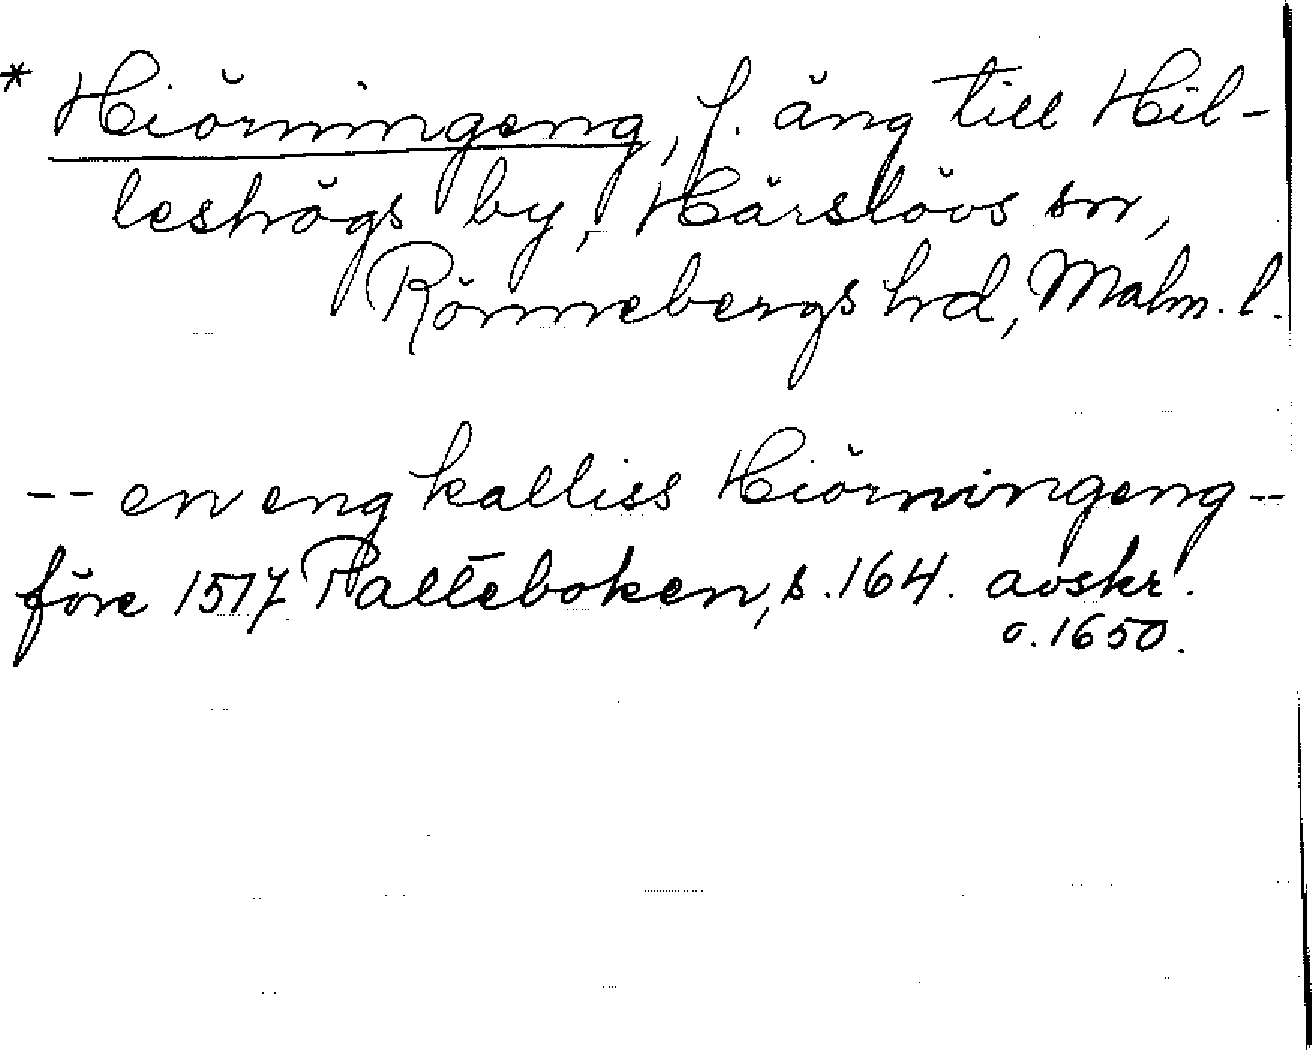 * Hiörningeng, f. äng till Hil-
leshögs by, Härslövs sn,
Rönnebergs hd, Malm. l.
-- en eng kalliss Hiörningeng --
före 1517 Palteboken, s. 164. avskr.
o. 1650.